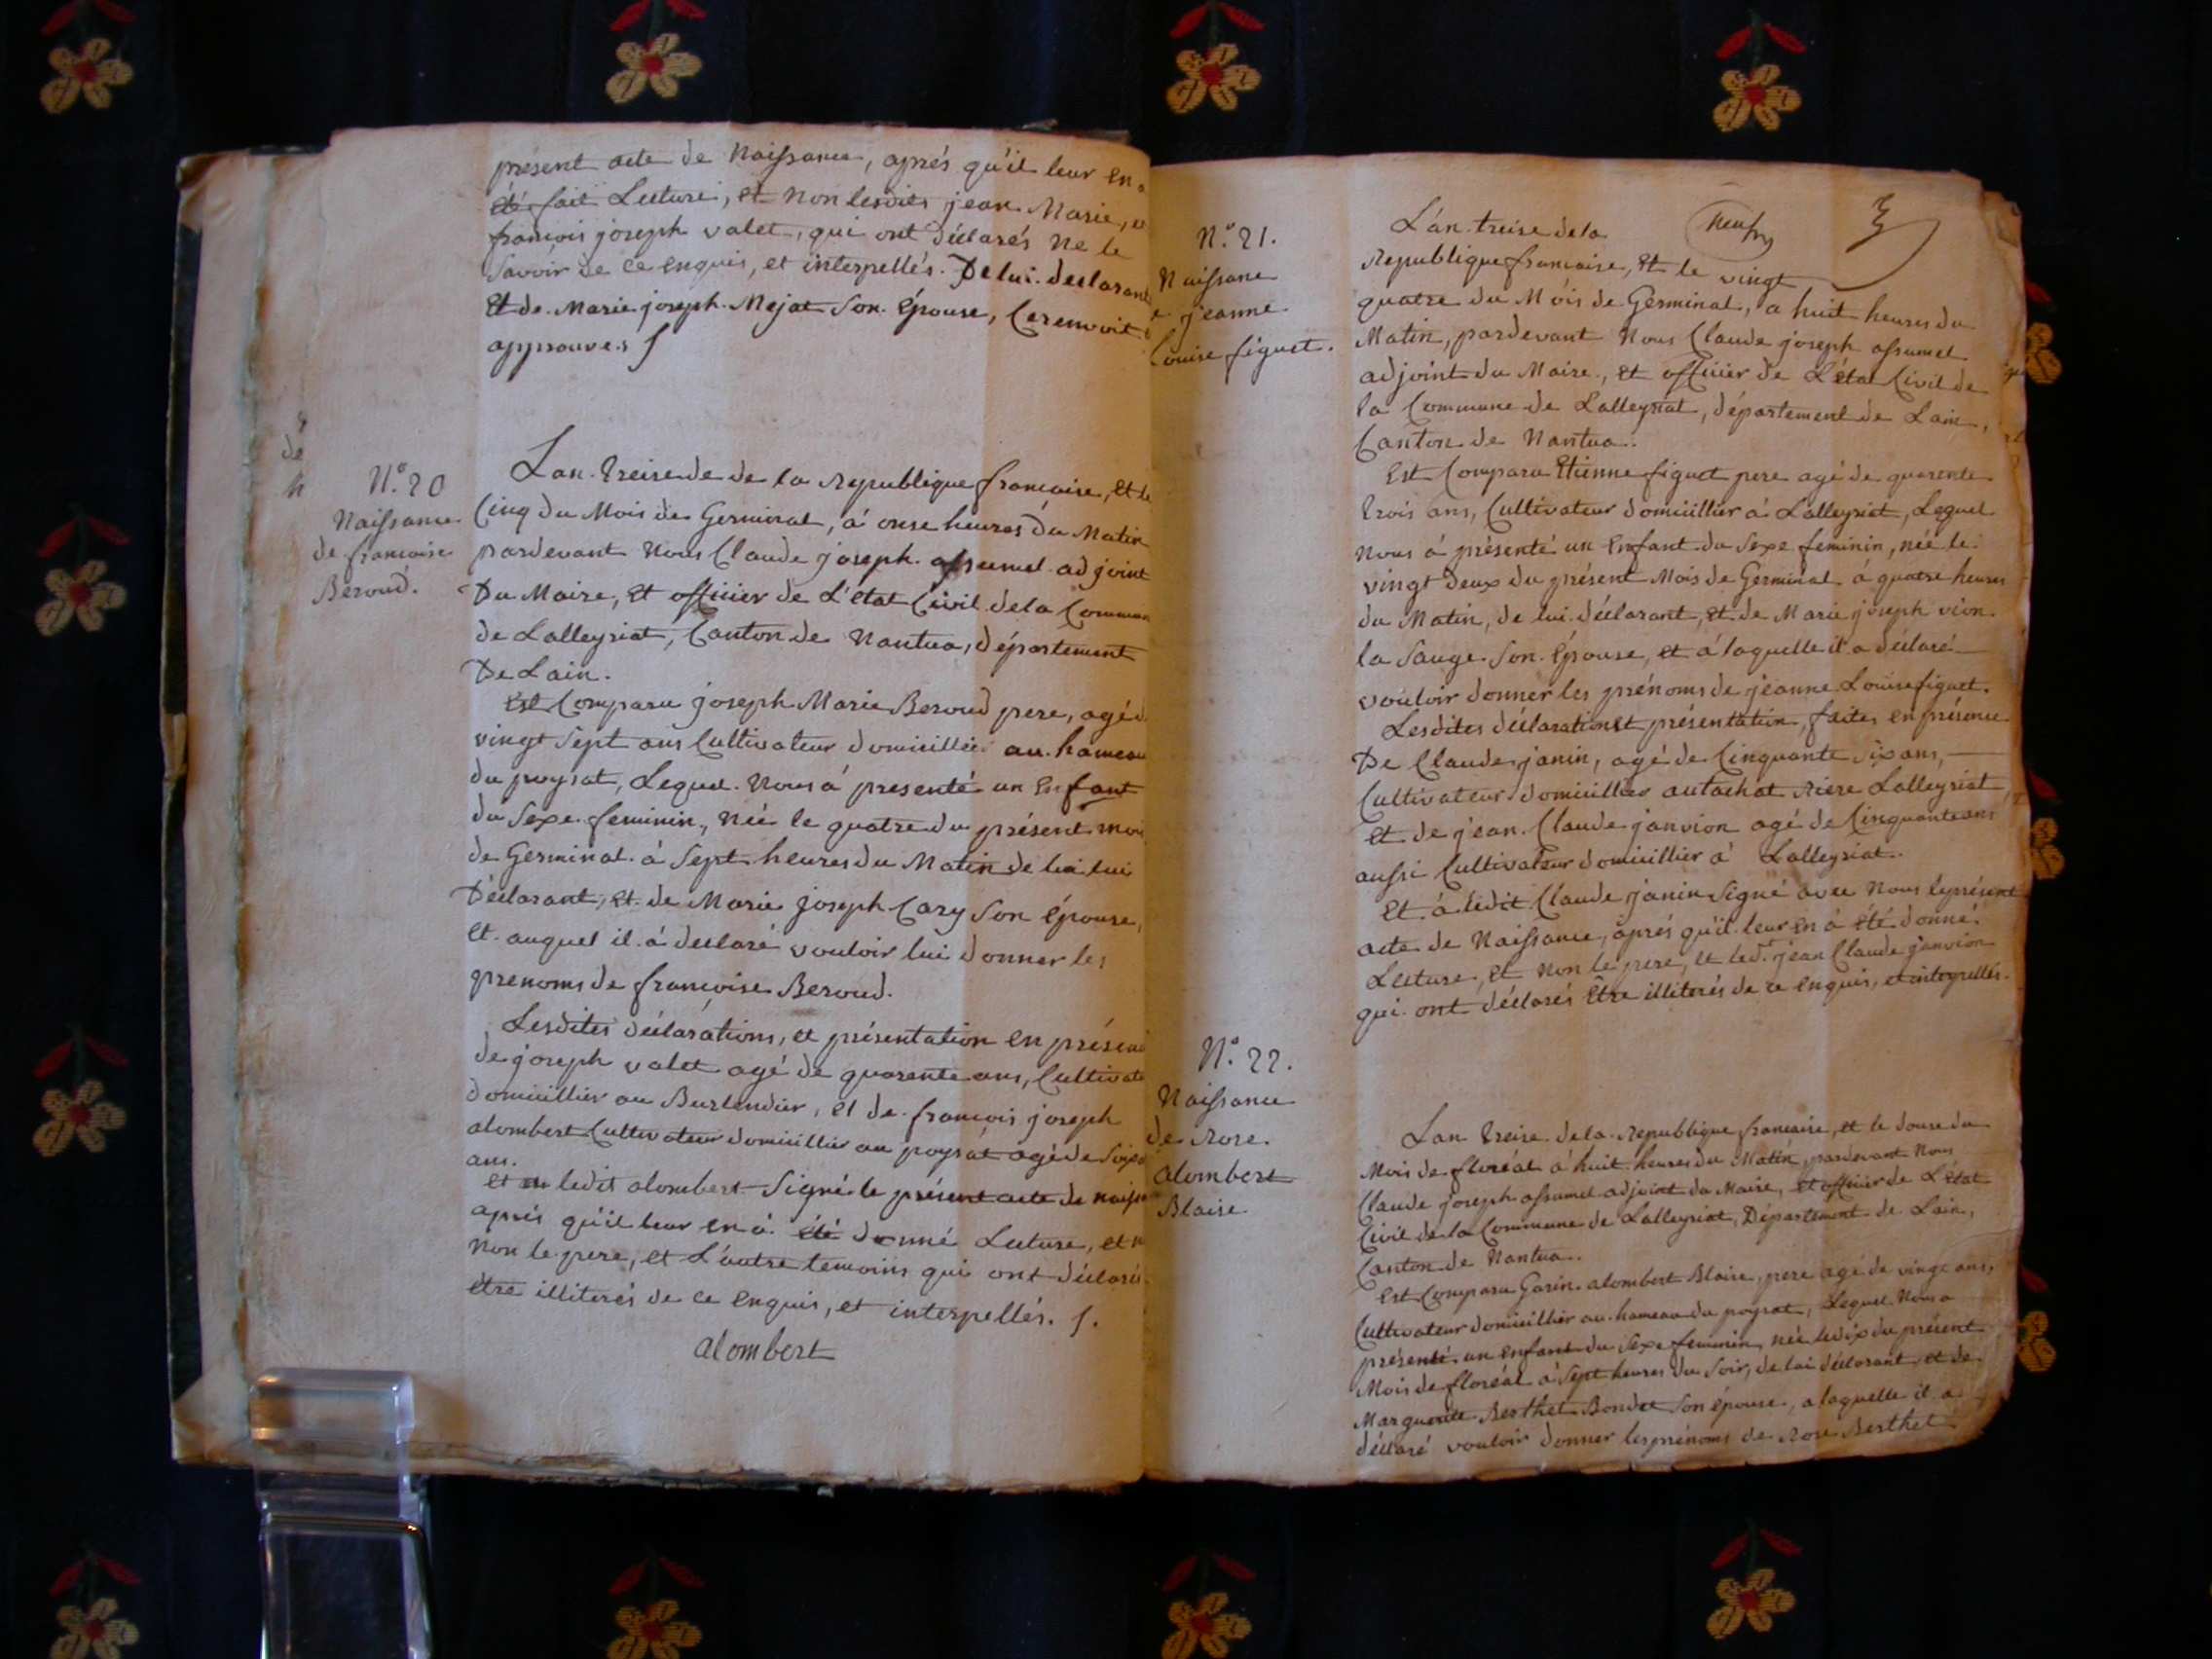 présent acte de Naissance, aprés qu'il leur en a
été fait Lecture, et Non lesdits jean Marie, et
françois joseph valet, qui ont déclarés Ne le
Savoir de ce enquis, et interpellés. De lui declarant
Et de Marie joseph Mejat Son Épouse, Ce renvoit
approuves
N.° 20
Naissance
de francoise
Beroud.
Lan treise de de la Republique francaise, et le
Cinq du Mois de Germinal, á onse heures du Matin
pardevant Nous Claude joseph assumel adjoint
Du Maire, et officier de L'état Civil de la Commune
de Lalleyriat, Canton de Nantua, département
De Lain.
Est Comparu joseph Marie Beroud pere, agé de
vingt Sept ans Cultivateur domicillié au hameau
du poysat, Lequel Nous á presenté un Enfant
du Sexe feminin, Née le quatre du présent mois
de Germinal á Sept heures du Matin de lui lui
Déclarant, et de Marie joseph Cary Son épouse,
et auquel il á declaré vouloir lui donner les
prenoms de francoise Beroud.
Lesdites déclarations, et présentation en présence
de joseph valet agé de quarente ans, Cultivate
domicillier au Burlendier, et de francois joseph
alombert Cultivateur domicillier au poysat agé de Soixa
ans.
et a ledit alombert Signé le présent acte de naissa
aprés qu'il leur en á été donné Lecture, et n
Non le pere, et L'autre temoins qui ont déclarés
être illiterés de ce enquis, et interpellés.
alombert
N.° 21.
Naissance
de jeanne
Louise figuet.
neuf
L'an treise de la
Republique francaise, Et le vingt
quatre du Mois de Germinal, a huit heures du
Matin, pardevant Nous Claude joseph assumel
adjoint du Maire, et officier de L'état Civil de
la Commune de Lalleyriat, département de Lain,
Canton de Nantua.
Est Comparu Etienne figuet pere agé de quarente
trois ans, Cultivateur domicillier á Lalleyriat, Lequel
Nous á présenté un Enfant du Sexe feminin, née le
vingt deux du présent Mois de Germinal á quatre heures
du Matin, de lui déclarant, et de Marie joseph vion
la Sauge Son Épouse, et á laquelle il a déclaré
vouloir donner les prénoms de jeanne Louise figuet.
Lesdites déclaration et présentation, faites en présence
De Claude janin, agé de Cinquante Six ans,
Cultivateur domicillier au tachat riere Lalleyriat
et de jean Claude janvion agé de Cinquante ans
aussi Cultivateur domicillier á Lalleyriat.
Et á ledit Claude janin Signé avec Nous le présent
acte de Naissance, aprés qu'il leur en á été donné
Lecture, et Non le pere, et led. jean Claude janvion
qui ont déclarés être illiterés de ce enquis, et interpellés.
N.° 22.
Naissance
de Rose
alombert
Blaise
Lan treise de la Republique francaise, et le douse du
Mois de floréal á huit heures du Matin, pardevant Nous
Claude joseph assumel adjoint du Maire, et officier de L'état
Civil de la Commune de Lalleyriat, Département de Lain,
Canton de Nantua.
Est Comparu Garin alombert Blaise, pere agé de vingt ans,
Cultivateur domicillier au hameau du poysat, Lequel Nous a
présenté un enfant du Sexe feminin, née le dix du présent
Mois de floréal á Sept heures du Soir, de lui déclarant, et de
Marguerite Berthet Bondet Son épouse, a laquelle il a
déclaré vouloir donner les prénoms de Rose Berthet